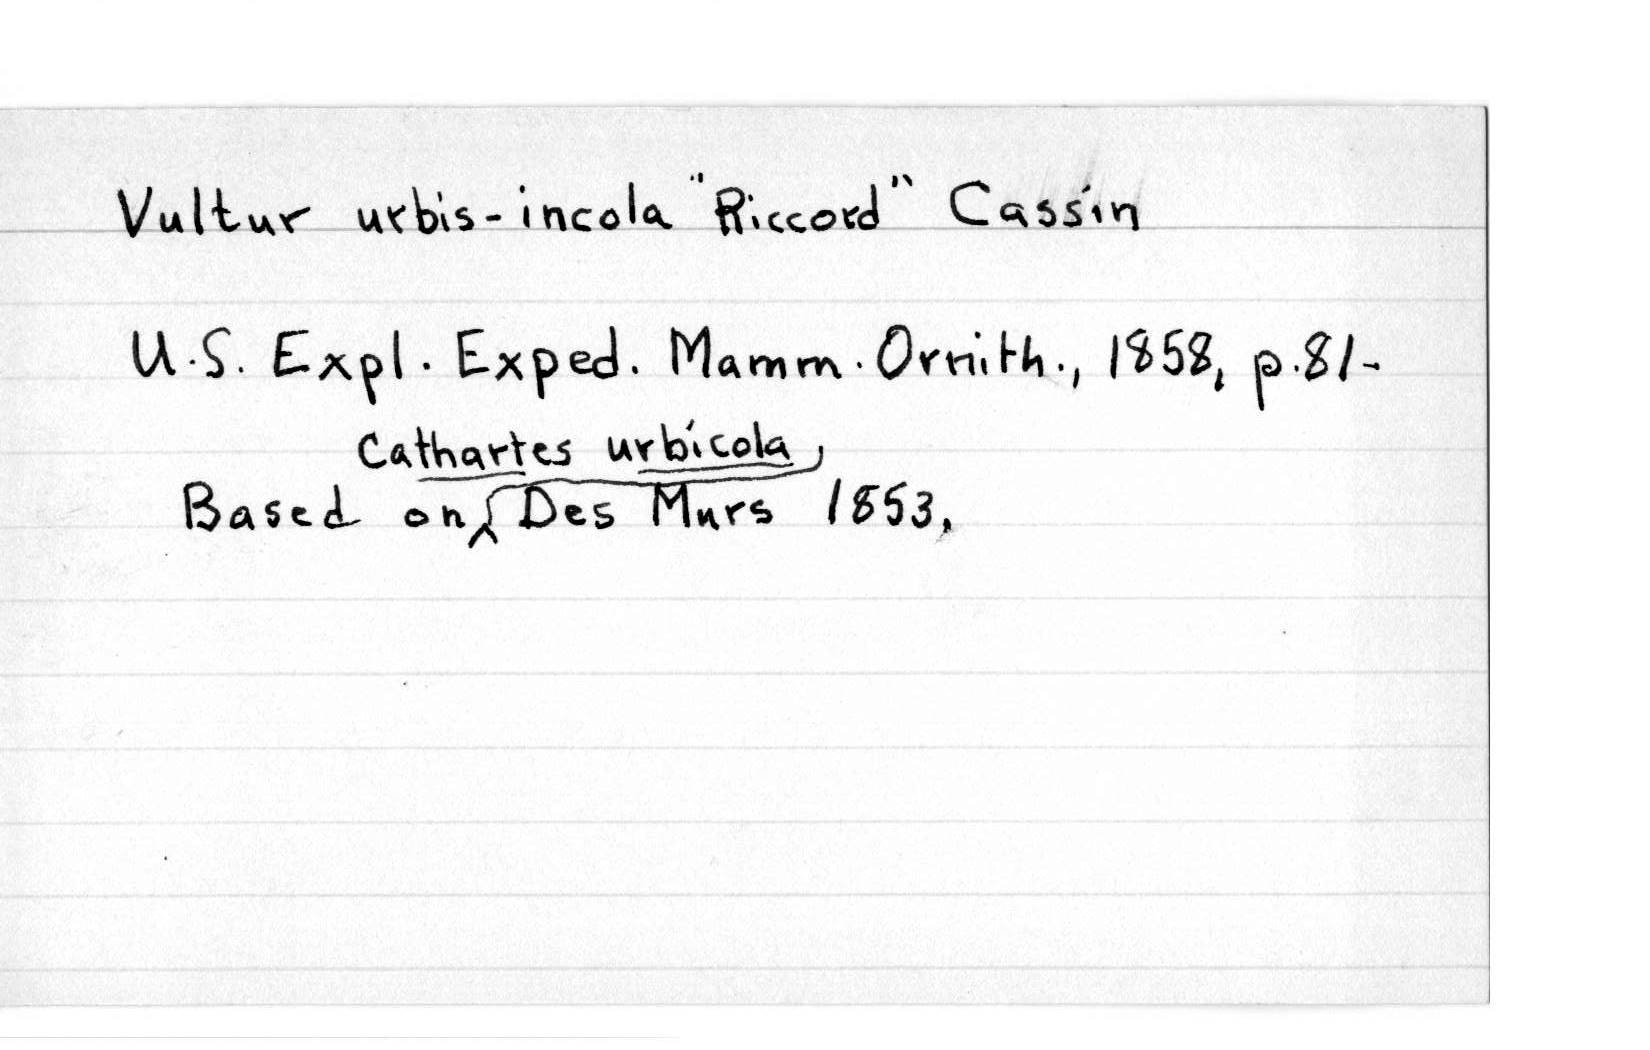 Vultur urbis-incola "Riccord" Cassin
U.S. Expl. Exped. Mamm. Ornith., 1858, p.81-
Cathartes urbicola,
Based on Des Murs 1853.